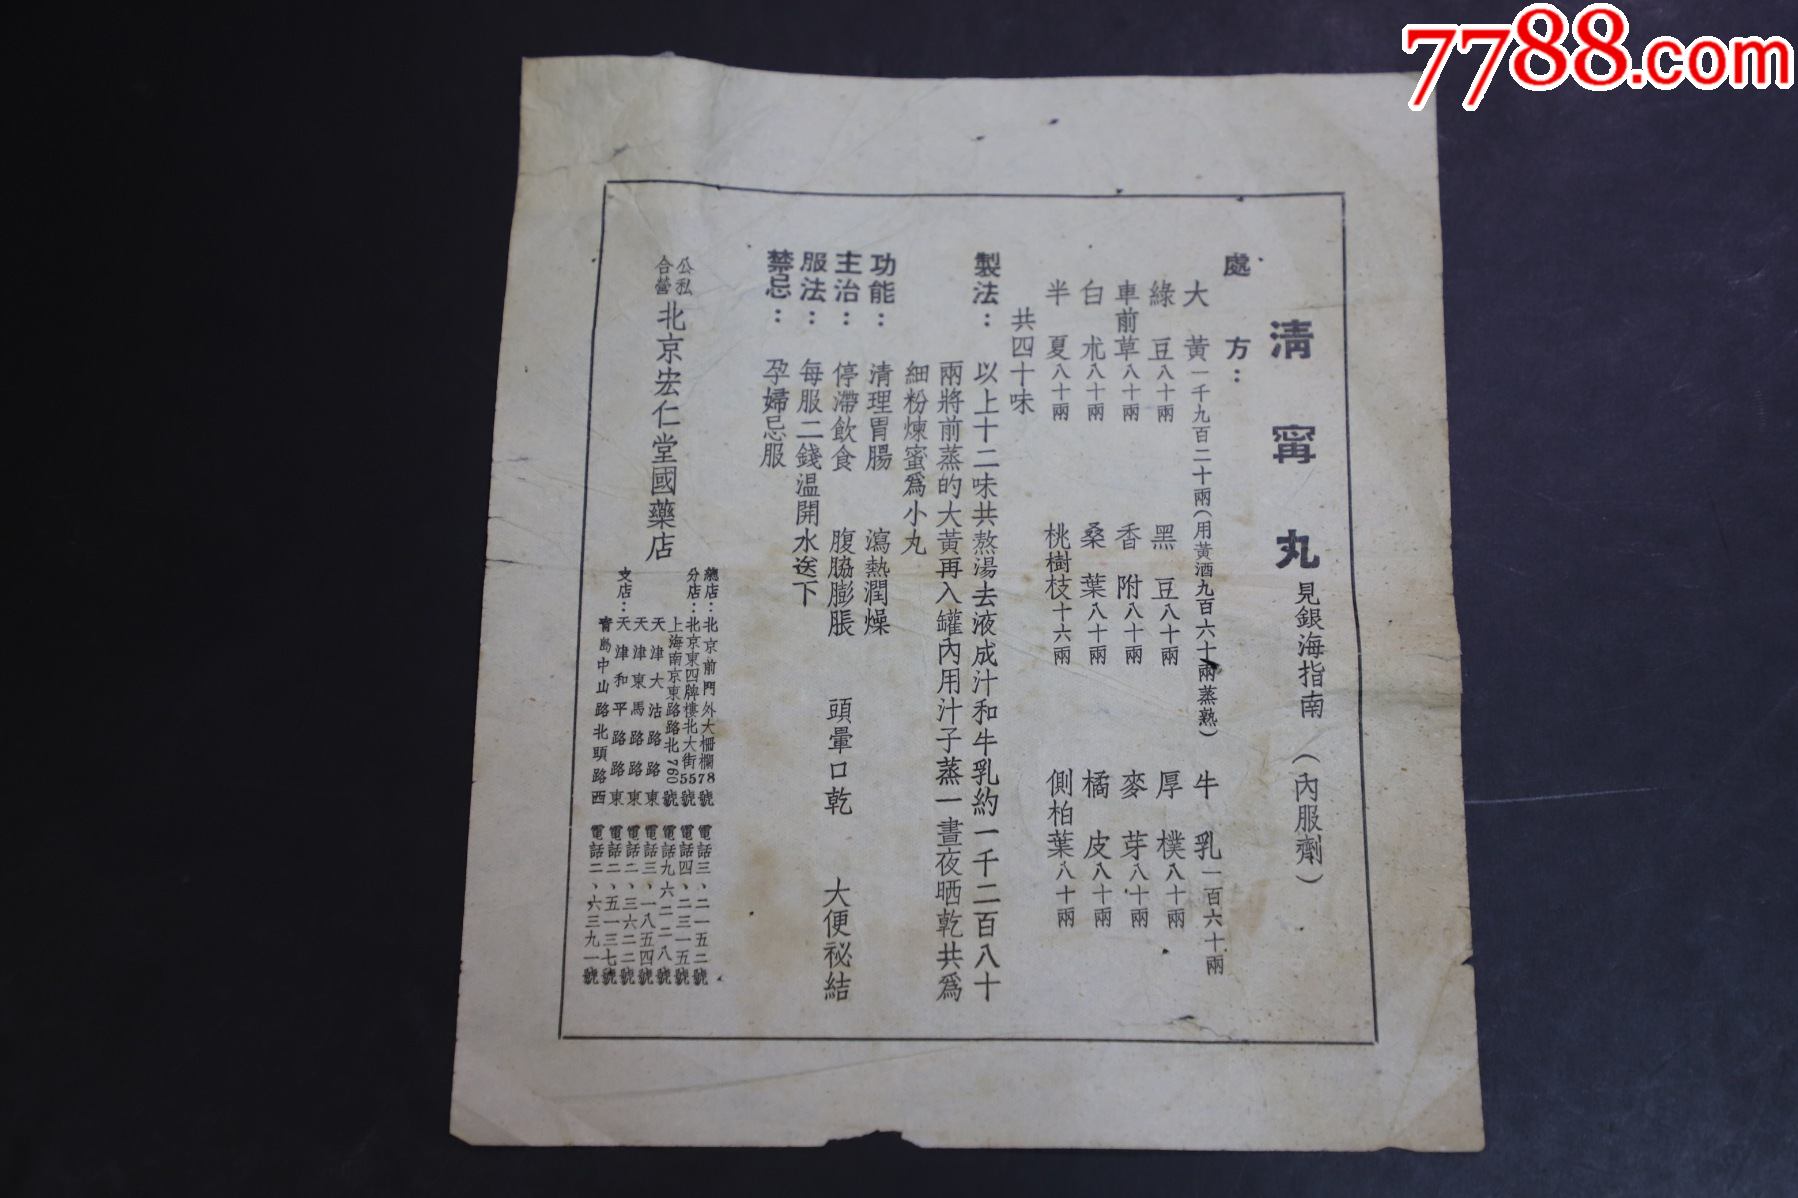 7788.com
清甯丸 見銀海指南 （內服劑）
處方：
大黃一千九百二十兩（用黃酒九百六十兩蒸熟） 牛乳一百六十兩
綠豆八十兩 黑豆八十兩 厚樸八十兩
車前草八十兩 香附八十兩 麥芽八十兩
白朮八十兩 桑葉八十兩 橘皮八十兩
半夏八十兩 桃樹枝十六兩 側柏葉八十兩
共四十味
製法：以上十二味共熬湯去液成汁和牛乳約一千二百八十
兩將前蒸的大黃再入罐內用汁子蒸一晝夜晒乾共爲
細粉煉蜜爲小丸
功能：清理胃腸 瀉熱潤燥
主治：停滯飲食 腹脇膨脹 頭暈口乾 大便祕結
服法：每服二錢温開水送下
禁忌：孕婦忌服
公私合營 北京宏仁堂國藥店
總店：北京前門外大柵欄78號 電話三、二一五二號
分店：北京東四牌樓北大街55號 電話四、二三一五號
上海南京東路路北760號 電話九六二二八號
支店：天津大沽路路東 電話三、一八五四號
天津東馬路路東 電話二、三六二二號
天津和平路路東 電話二、五一三七號
青島中山路北頭路西 電話二、六三九一號